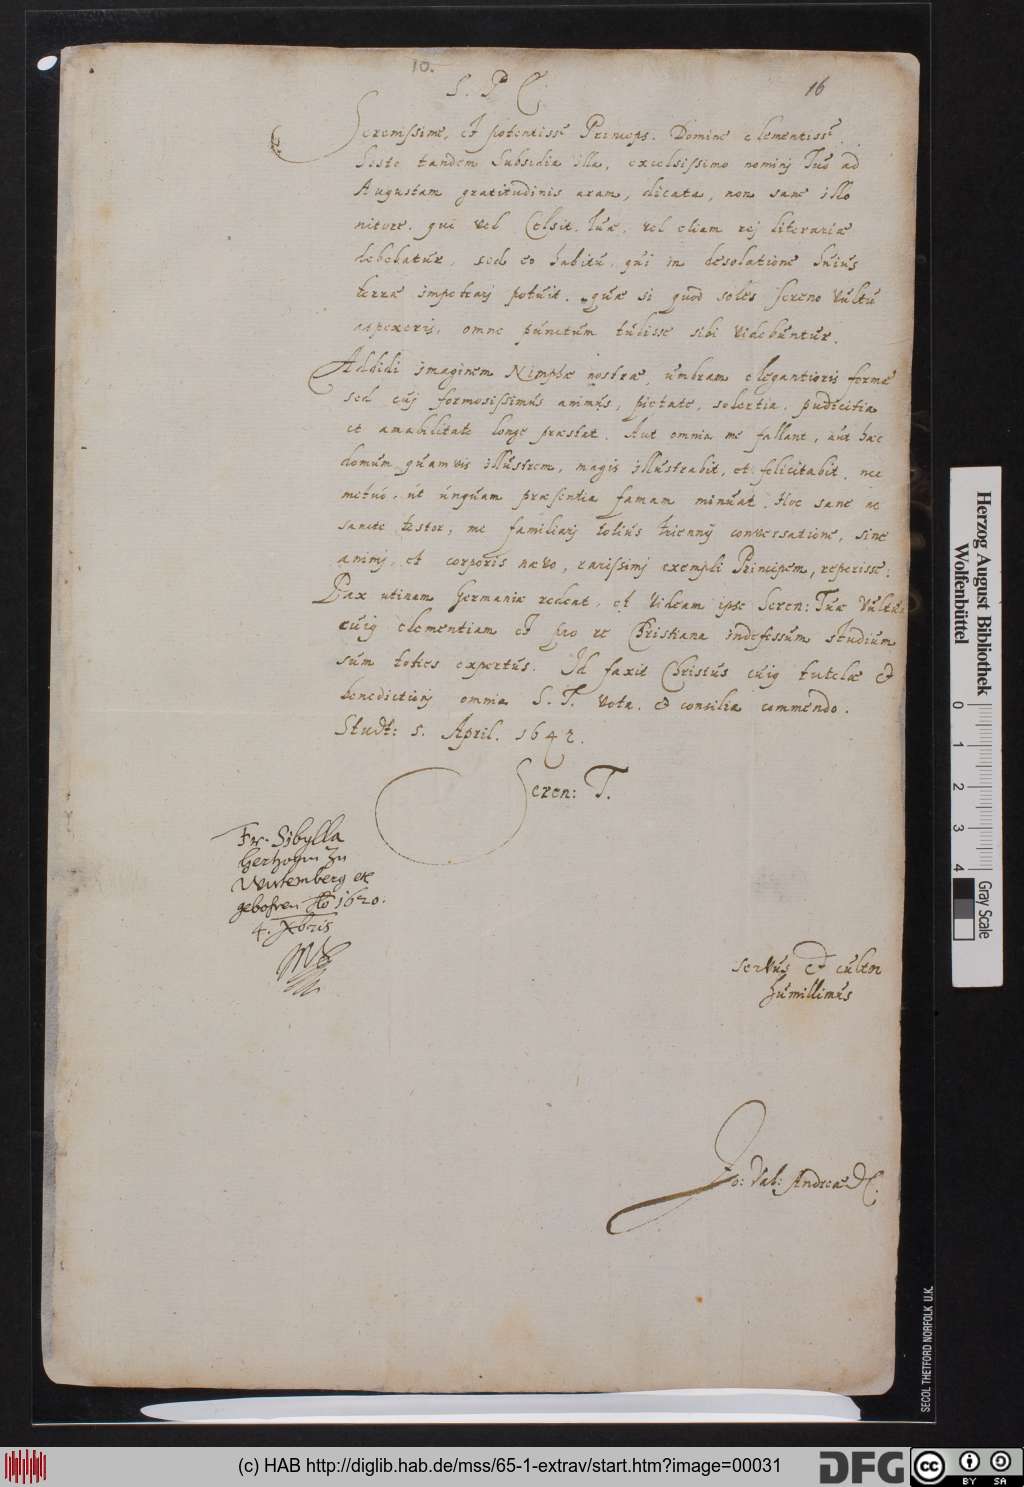 10.
16
S. P.
Serenissime, et potentisse Princeps. Domine clementisse
Siste tandem Subsidia illa, excelsissimo nominj Tuo ad
Augustam gratitudinis aram, dicata, non sane illo
nitore, qui vel Celsit. Tuæ, vel etiam rej literariæ
debebatur, sed eo habitu, qui in desolatione huius
terræ impetrarj potuit. quæ si quod soles sereno vultu
aspexeris, omne punctum tulisse sibi videbuntur.
Addidi imaginem Nimphæ nostræ, umbram elegantioris formæ
sed cuj formosissimus animus, pietate, solertia, pudicitia
et amabilitate longe præstat. Aut omnia me fallunt, aut hæc
domum quamvis illustrem, magis illustrabit, et felicitabit, nec
metuo, ut unquam præsentia famam minuat. Hoc sane ac
sancte testor, me familiarj totius triennij conversatione, sine
animj, et corporis nævo, rarissimj exempli Principem, reperisse:
Pax utinam Germaniæ redeat, et videam ipse Seren: Tuæ vultum
cuig clementiam et pro re Christiana indefessum studium
sum toties expertus. Id faxit Christus cuig tutelæ &
benedictionj omnia S. T. vota, & consilia commendo.
Studt: 5. April. 1642.
Seren: T.
Fr. Sibylla
Hertzogin zu
Wirtemberg etc
geboren Ao 1620.
4. Xbris
servus et cultor
humillimus
Jo: Val: Andreæ D.
Herzog August Bibliothek
Wolfenbüttel
0 1 2 3 4
Gray Scale
SECOL THETFORD NORFOLK U.K.
(c) HAB http://diglib.hab.de/mss/65-1-extrav/start.htm?image=00031
DFG
cc BY SA